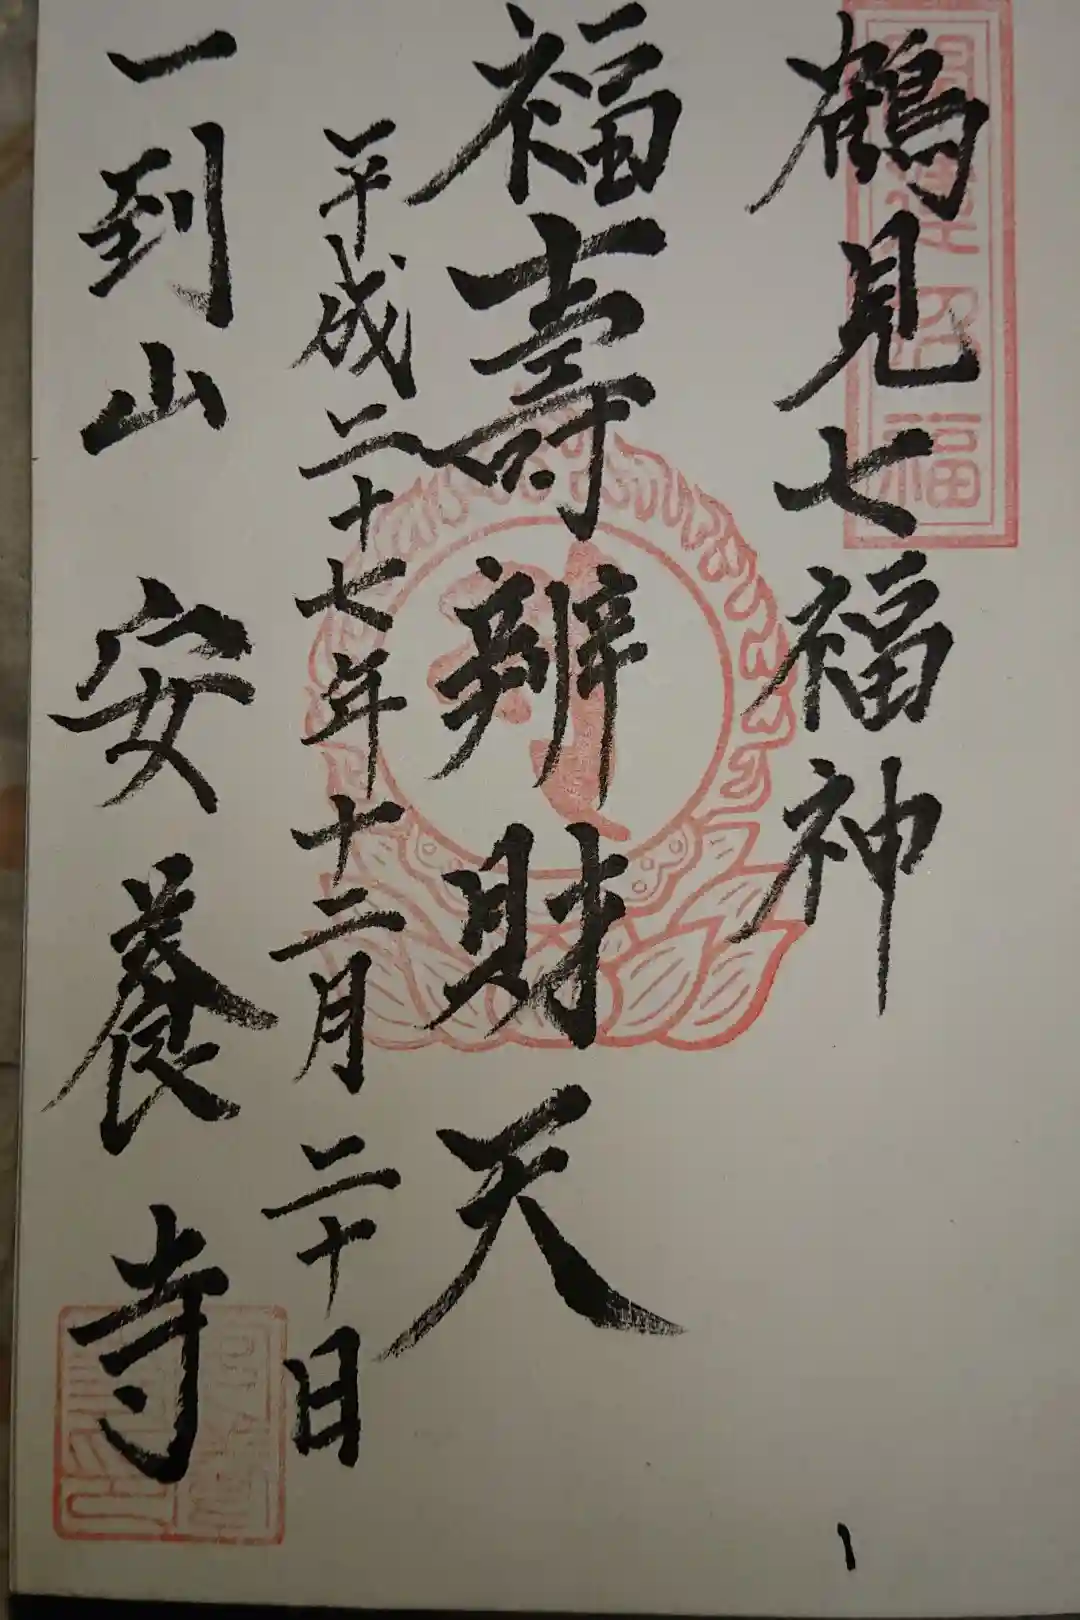 鶴見七福神
開運招福
福壽辨財天
平成二十七年十二月二十日
一到山 安養寺